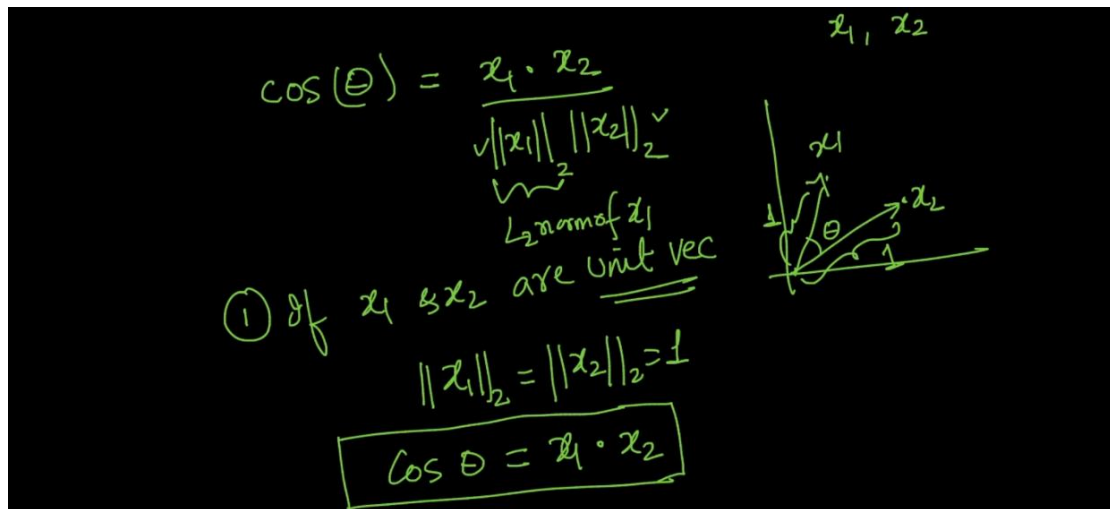 x₁, x₂
cos(θ) = x₁ · x₂
||x₁||₂ ||x₂||₂
L₂ norm of x₁
x₁
x₂
θ
1
1
① If x₁ & x₂ are unit vec
||x₁||₂ = ||x₂||₂ = 1
Cos θ = x₁ · x₂